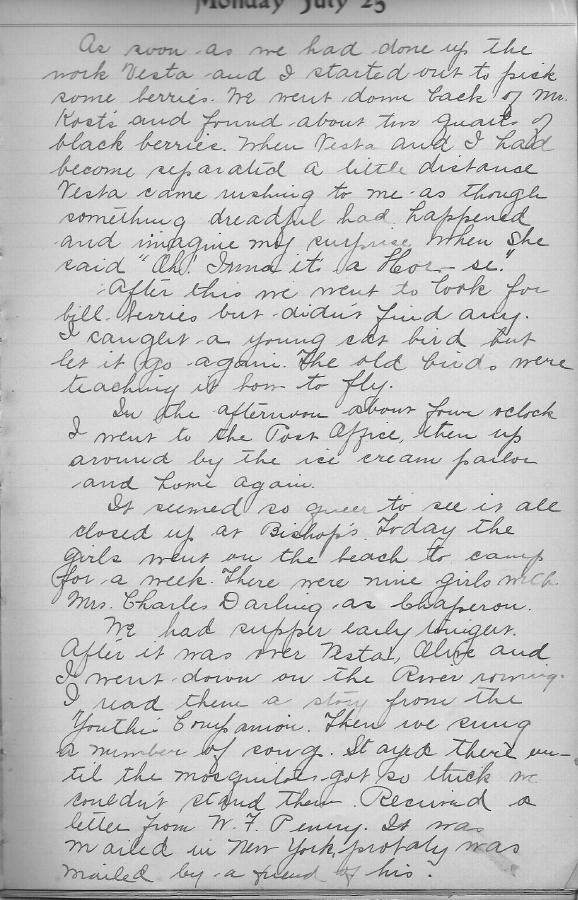 Monday July 25
As soon as we had done up the
work Vesta and I started out to pick
some berries. We went down back of Mr.
Kosts and found about two quarts of
black berries. When Vesta and I had
become separated a little distance
Vesta came rushing to me as though
something dreadful had happened
and imagine my surprise when she
said "Oh! Inna it's a Hor-se."
After this we went to look for
bill berries but didn't find any.
I caught a young cat bird but
let it go again. The old birds were
teaching it how to fly.
In the afternoon about four oclock
I went to the Post Office, then up
around by the ice cream parlor
and home again.
It seemed so queer to see it all
closed up at Bishop's. Today the
girls went on the beach to camp
for a week. There were nine girls with
Mrs. Charles Darling as chaperon.
We had supper early tonight.
After it was over Vesta, Olive and
I went down on the River rowing.
I read them a story from the
Youth's Companion. Then we sung
a number of song. Stayed there un-
til the mosquitoes got so thick we
couldn't stand them. Received a
letter from W. F. Penny. It was
mailed in New York, probaly was
mailed by a friend of his.